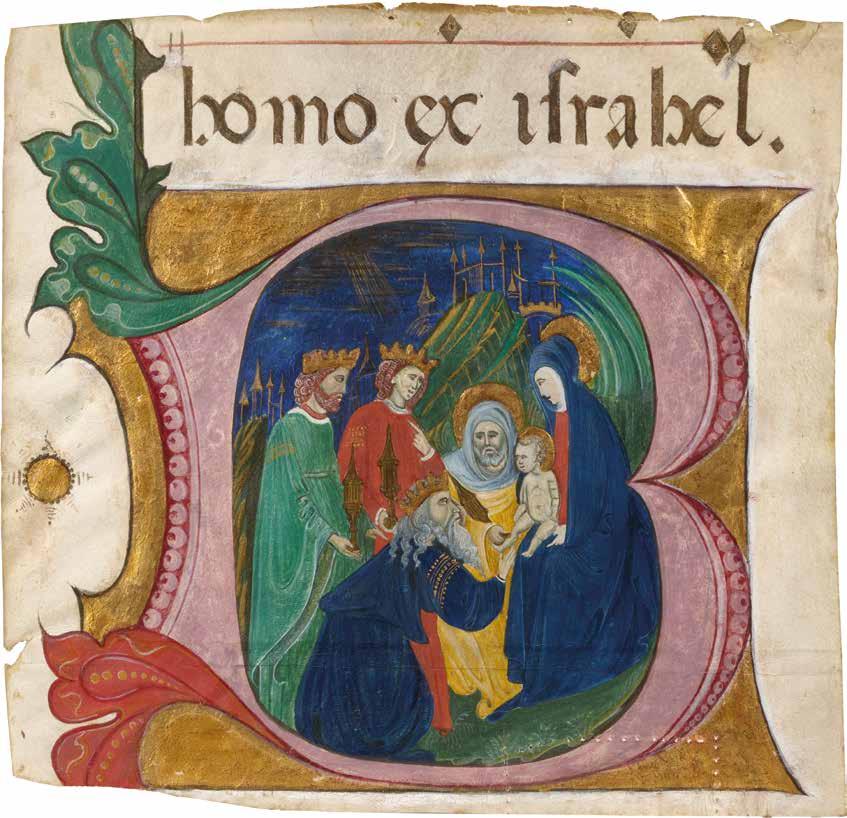 homo ex iſrahel.